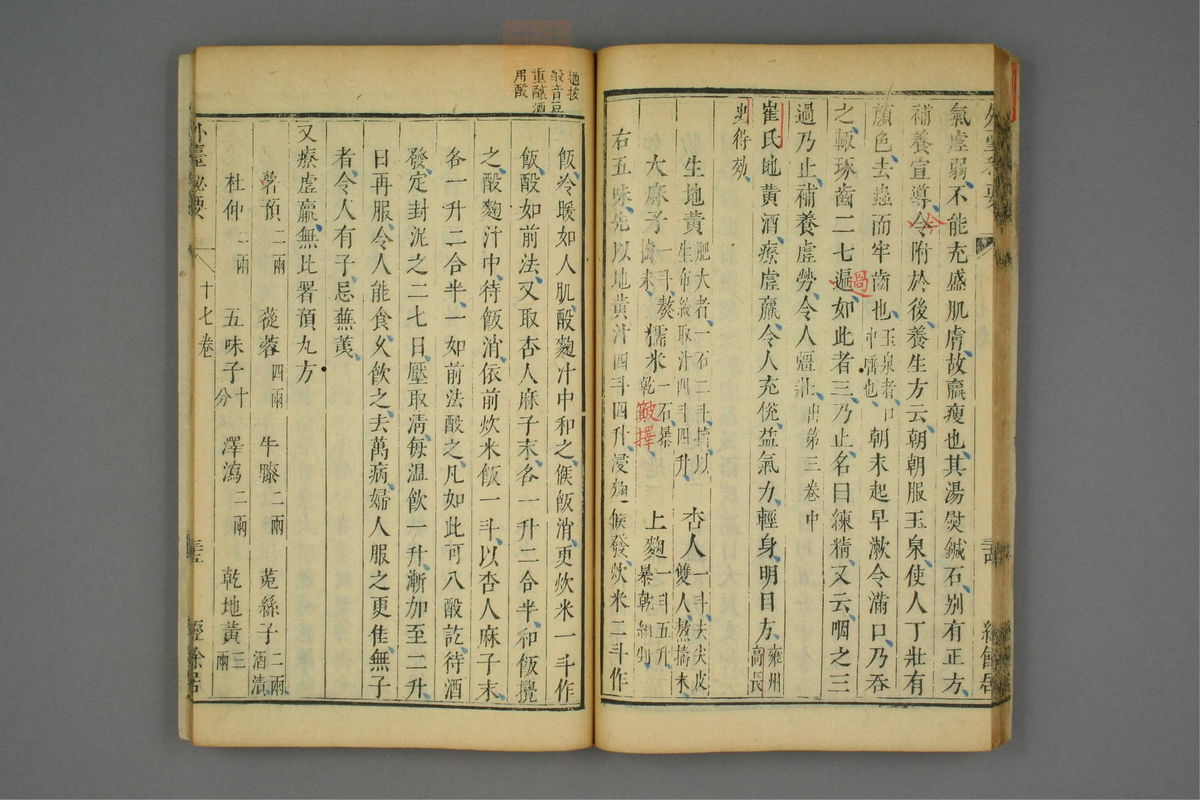 氣虛弱不能充盛肌膚故羸瘦也其湯熨鍼石別有正方
補養宣導令附於後養生方云朝朝服玉泉使人丁壯有
顏色去蟲而牢齒也玉泉者口中唾也朝未起早漱令滿口乃吞
之輒琢齒二七遍如此者三乃止名曰練精又云咽之三
過乃止補養虛勞令人彊壯出第三卷中
崔氏地黃酒療虛羸令人充悅益氣力輕身明目方雍州高長
史得効
生地黃肥大者一石二斗擣以生布絞取汁四斗四升 杏人一斗去尖皮雙人熬擣末
大麻子一斗熬擣末 糯米一石暴乾 上麴一斗五升暴乾細剉
右五味先以地黃汁四斗四升浸麴候發炊米二斗作
飯冷暖如人肌酘麴汁中和之候飯消更炊米一斗作
飯酘如前法又取杏人麻子末各一升二合半和飯攪
之酘麴汁中待飯消依前炊米飯一斗以杏人麻子末
各一升二合半一如前法酘之凡如此可八酘訖待酒
發定封泥之二七日壓取清每溫飲一升漸加至二升
日再服令人能食久飲之去萬病婦人服之更佳無子
者令人有子忌蕪荑
又療虛羸無比署預丸方
薯預二兩 蓯蓉四兩 牛膝二兩 菟絲子二兩酒漬
杜仲二兩 五味子十分 澤瀉二兩 乾地黃三兩
外臺祕要 十七卷 經餘居
酘音豆
重釀酒
用酘
過
皾擇